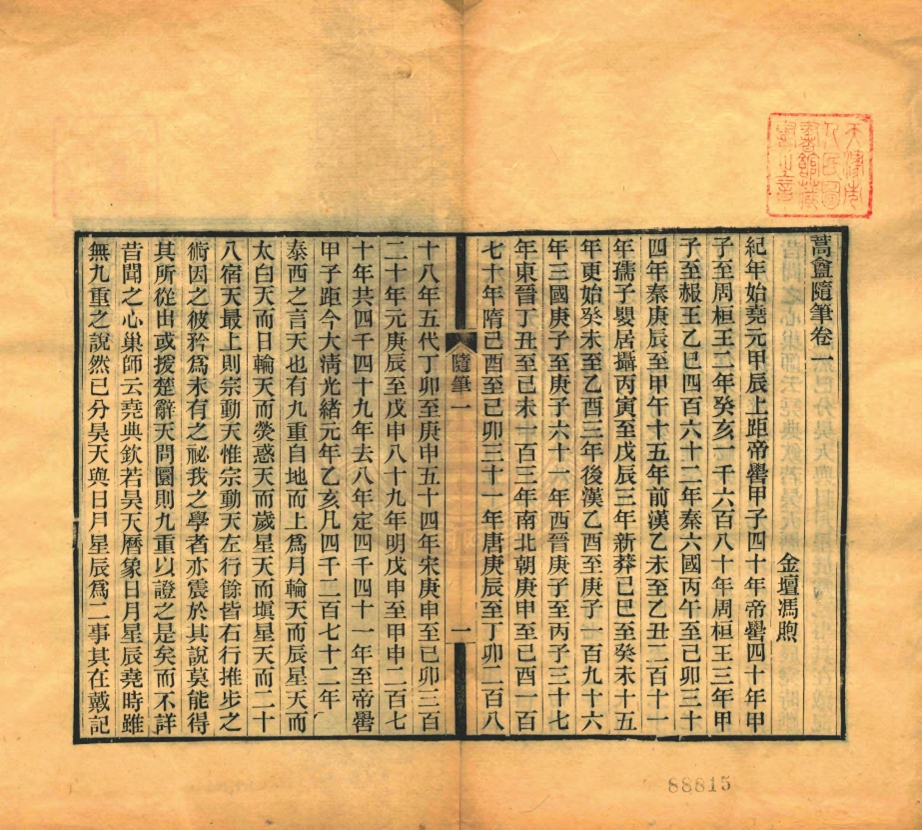 蒿盦隨筆卷一
金壇馮煦
紀年始堯元甲辰上距帝嚳甲子四十年帝嚳四十年甲
子至周桓王二年癸亥一千六百八十年周桓王三年甲
子至赧王乙巳四百六十二年秦六國丙午至己卯三十
四年秦庚辰至甲午十五年前漢乙未至乙丑二百十一
年孺子嬰居攝丙寅至戊辰三年新莽己巳至癸未十五
年更始癸未至乙酉三年後漢乙酉至庚子一百九十六
年三國庚子至庚子六十一年西晉庚子至丙子三十七
年東晉丁丑至己未一百三年南北朝庚申至己酉一百
七十年隋己酉至己卯三十一年唐庚辰至丁卯二百八
隨筆一
一
十八年五代丁卯至庚申五十四年宋庚申至己卯三百
二十年元庚辰至戊申八十九年明戊申至甲申二百七
十年共四千四十九年去八年定四千四十一年至帝嚳
甲子距今大淸光緒元年乙亥凡四千二百七十二年
泰西之言天也有九重自地而上爲月輪天而辰星天而
太白天而日輪天而熒惑天而歲星天而塡星天而二十
八宿天最上則宗動天惟宗動天左行餘皆右行推步之
術因之彼矜爲未有之祕我之學者亦震於其說莫能得
其所從出或援楚辭天問圜則九重以證之是矣而不詳
昔聞之心巢師云堯典欽若昊天曆象日月星辰堯時雖
無九重之說然已分昊天與日月星辰爲二事其在戴記
天津市
人民圖
書館藏
書之章
88815